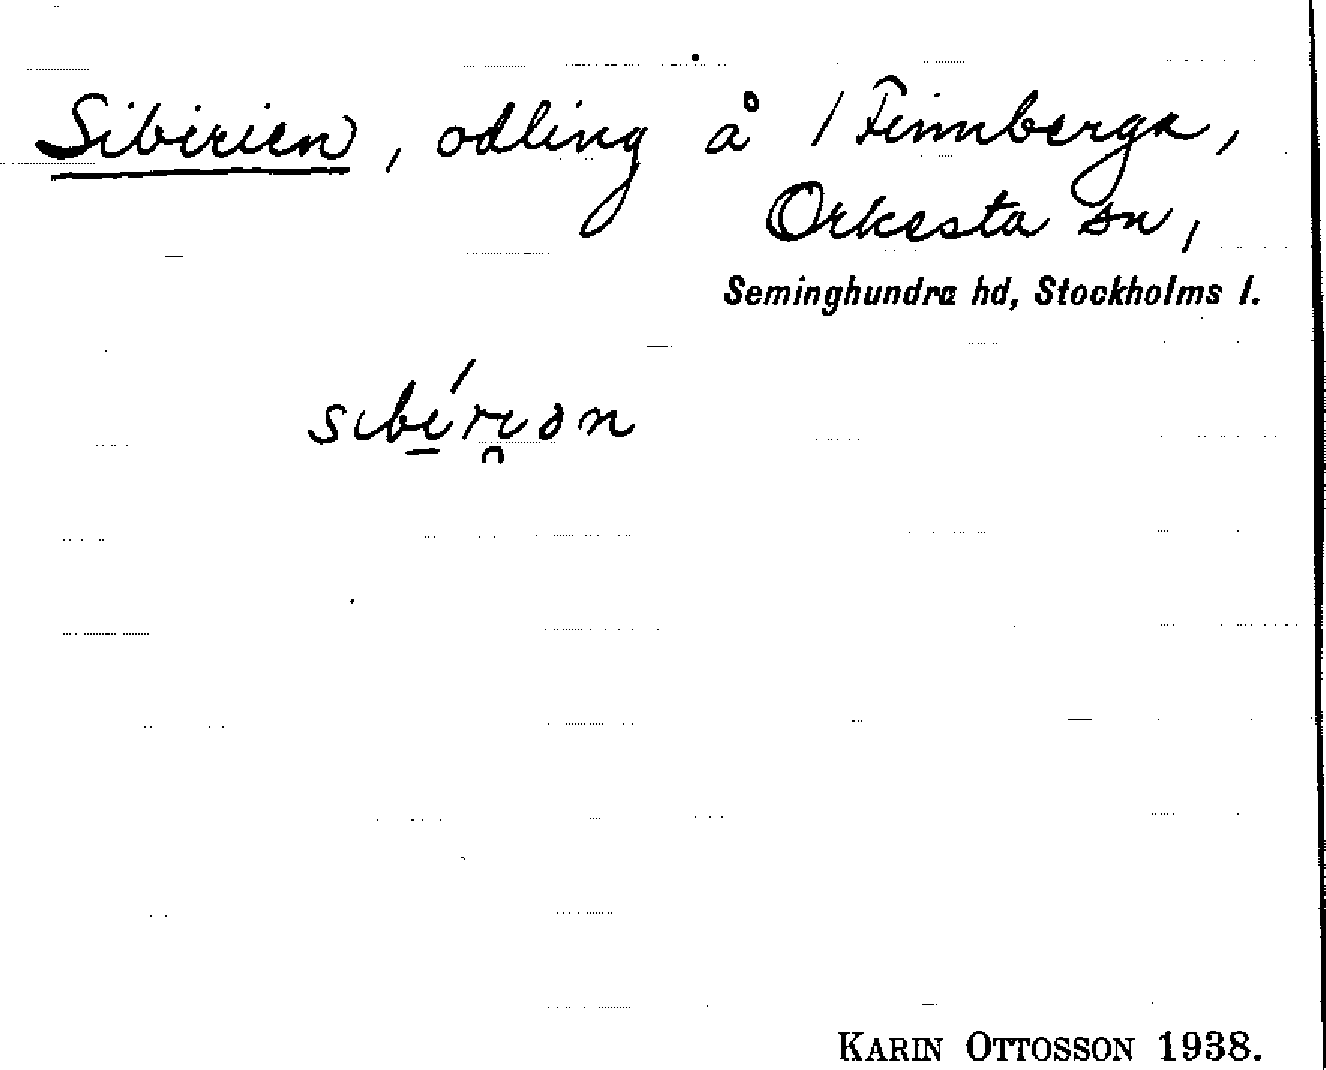 Sibirien, odling å / Finnberga,
Orkesta sn,
Seminghundra hd, Stockholms l.
sıbí̱rı̯ən
KARIN OTTOSSON 1938.